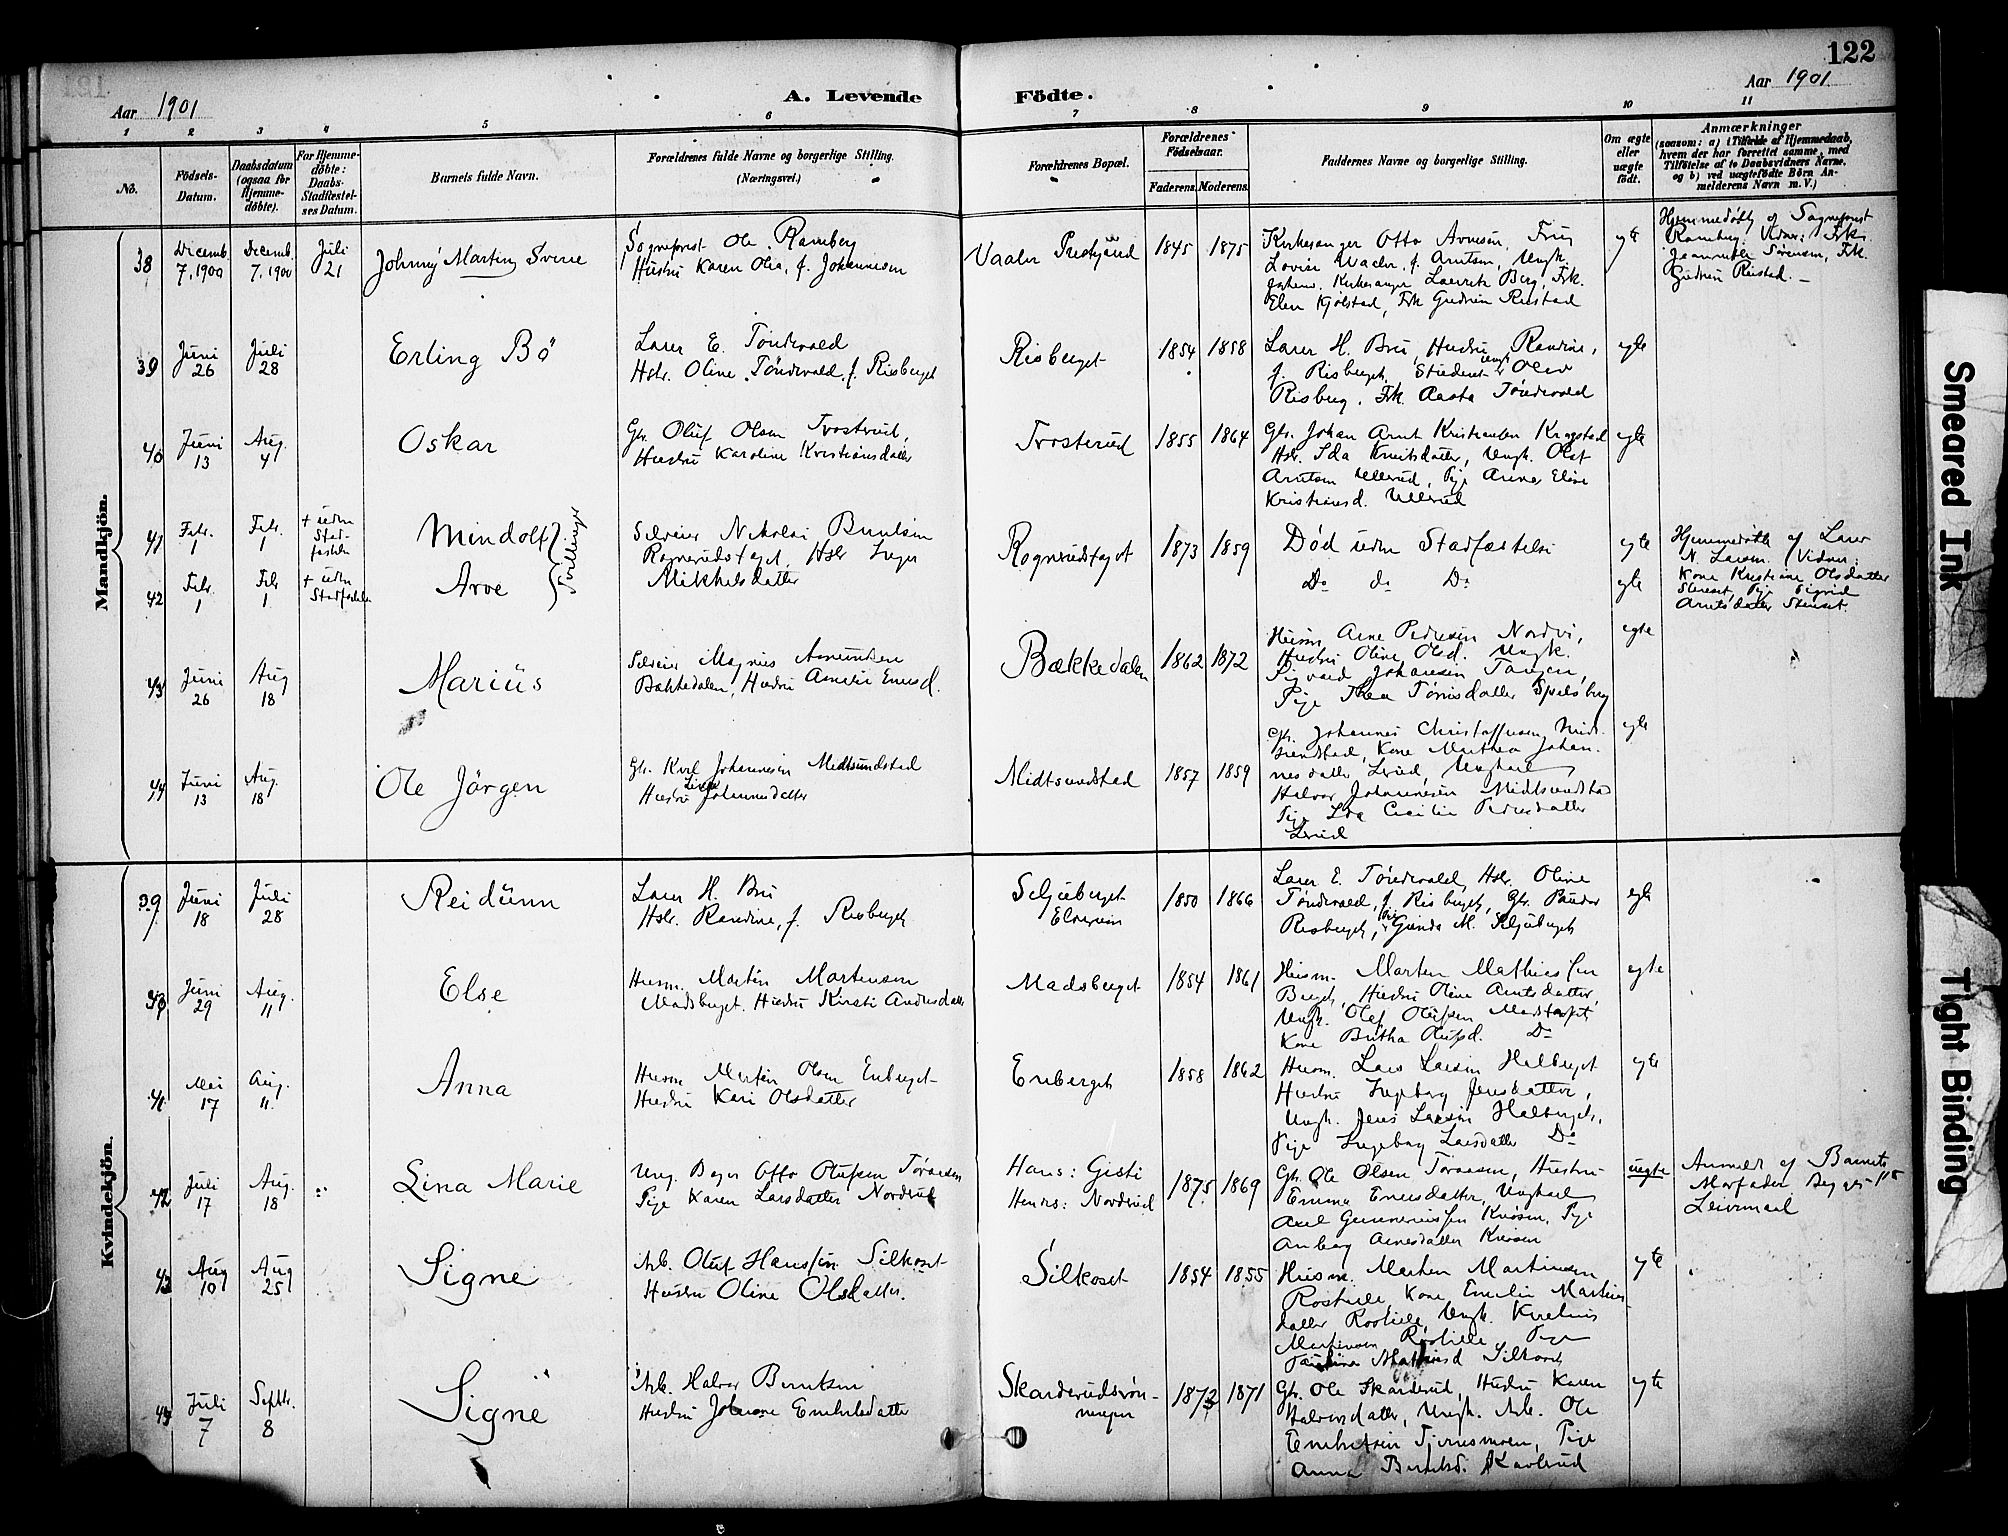 122
Aar 1901
A. Levende
Födte.
Aar 1901
1 2 3 4 5 6 7 8 9 10 11
No.
Födsels-
Datum.
Daabsdatum
(ogsaa for
Hjemme-
döbte).
For Hjemme-
döbte:
Daabs-
Stadfæstel-
ses Datum.
Barnets fulde Navn.
Forældrenes fulde Navne og borgerlige Stilling.
(Næringsvei.)
Forældrenes Bopæl.
Forældrenes
Födselsaar.
Faderens. Moderens.
Faddernes Navne og borgerlige Stilling.
Om ægte
eller
uægte
födt.
Anmærkninger
(saasom: a) Tilfælde af Hjemmedaab,
hvem der har forrettet samme, med
Tilföielse af to Daabsvidners Navne,
og b) ved uægtefödte Börn An-
melderens Navn m. V.)
Mandkjön.
38
Decemb.
7, 1900
Decemb.
7, 1900
Juli
21
Johnny Martin Sverre
Sogneprest Ole Ramberg
Hustru Karen Olea, f. Johannesen
Vaaler Prestgaard
1845
1875
Kirkesanger Otto Arnesen, Frue
Lovise Vaaler, f. Arntsen, Ungk.
Kirkesanger Lauritz Berg, Frk.
Elen Kjölstad, Frk Gudrun Rustad
egte
Hjemmedøbt af Sogneprest
Ramberg. Vidner: Frk.
Sørensen, Frk.
Gudrun Rustad. -
39
Juni
26
Juli
28
Erling Bö
Lærer E. Töndevold
Hstr. Oline Töndevold, f. Risberget
Risberget
1854
1858
Lærer H. Bru, Hustru Randine,
f. Risberget, Student ungk Olav
Risberg, Frk. Aasta Töndevold
egte
40
Juni
13
Aug.
4
Oskar
Gbr. Oluf Olsen Trosterud,
Hustru Karoline Kristiansdatter
Trosterud
1855
1864
Gbr. Johan Arnt Kristiansen Krogstad
Hstr. Ida Knutsdatter, Ungk. Olaf
Arntsen Ullerud, Pige Anna Eline
Kristiansd. Ullerud
egte
41
Febr.
1
Febr.
1
+ uden
Stad-
fæstelse
Mindolf
Arve
Tvillinger
Selveier Nikolai Berntsen
Rognerudstaget, Hstr Inger
Mikkelsdatter
Rognrudstaget
1873
1859
Død uden Stadfæstelse
egte
Hjemmedøbt af Lærer
N. Larsen. Vidner:
Kone Kristiane Olsdatter
Stenset, Pige Sigrid
Arntsdatter Stenset.
42
Febr.
1
Febr
1
+ uden
Stadfæstelse
Do do Do
egte
43
Juni
26
Aug
18
Marius
Selveier Magnus Amundsen
Bækkedalen, Hustru Amalie Emersd.
Bækkedalen
1862
1872
Husm. Arne Pedersen Nordvi,
Hustru Oline Olsd. Ungk.
Sigvard Johansen Tangen,
Pige Thea Tønnisdatter Spelsberg
egte
44
Juni
13
Aug.
18
Ole Jörgen
Gbr. Karl Johannesen Midtsundstad
Hustru Johannesdatter
Midtsundstad
1857
1859
Gbr. Johannes Christoffersen Midt-
sundstad, Kone Marthea Johan-
nesdatter Lerud, Ungkarl
Halvor Johannesen Midtsundstad
Pige Ida Cecilie Pedersdatter
Lerud
egte
Kvindekjön.
39
Juni
18
Juli
28
Reidunn
Lærer H. Bru
Hstr. Randine, f. Risberget
Seljuberget
Elverum
1850
1866
Lærer E. Töndevold, Hstr. Oline
Töndevold, f. Risberget, Gbr. Peder
Risberget, Pige Gunda M. Seljuberget
egte
40
Juni
29
Aug.
11
Else
Husm. Martin Martinsen
Madsberget. Hustru Kirsti Andersdatter
Madsberget
1854
1861
Husm. Marten Mathiesen
Berget, Hustru Oline Arntsdatter,
Ungk. Olaf Olufsen Madsberget
Kone Britha Olufsd. Do
egte
41
Mai
17
Aug.
11.
Anna
Husm. Martin Olsen Enberget
Hustru Kari Olsdatter
Enberget
1858
1862
Husm. Lars Larsen Halberget
Hustru Ingeborg Jensdatter,
Ungk. Jens Larsen Halberget,
Pige Ingeborg Larsdatter Do
egte
42
Juli
17
Aug.
18
Lina Marie
Ung. Otto Olufsen Toraasen
Pige Karen Larsdatter Nordrud
Hans: Gjesti
Hendes: Nordrud
1875
1869
Gbr. Ole Olsen Toraasen, Hustru
Emma Emersdatter, Ungkarl
Axel Gunneriussen Knosen, Pige
Anborg Arnesdatter Knosen
uegte
Anmeldt af Barnets
Morfader
43
Aug
10
Aug
25
Signe
Arb. Oluf Hanssen Silkoset
Hustru Oline Olsdatter.
Silkoset
1854
1855
Husm. Marten Martinsen
Kone Emelie Martins-
datter Ungk. Kornelius
Martinsen Pige
Silkoset
egte
44
Juli
7
Septbr.
8
Signe
Arb. Halvor Berntsen
Hustru Johanne Embretsdatter
Skarderudsrøn-
ningen
1873
1871
Gbr. Ole Skarderud, Hustru Karen
Halvorsdatter, Ungk. Arb. Ole
Embretsen Tjernsmoen, Pige
Anna Berntsd. Skavlrud
egte
Smeared Ink
Tight Binding